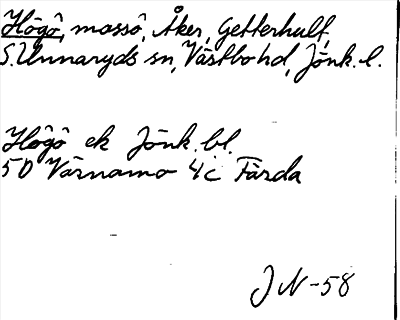 Högö, mossö, Åker, Getterhult,
S. Unnaryds sn, Västbo hd, Jönk. l.
Högö ek Jönk. bl.
5D Värnamo 4c Färda
JN-58